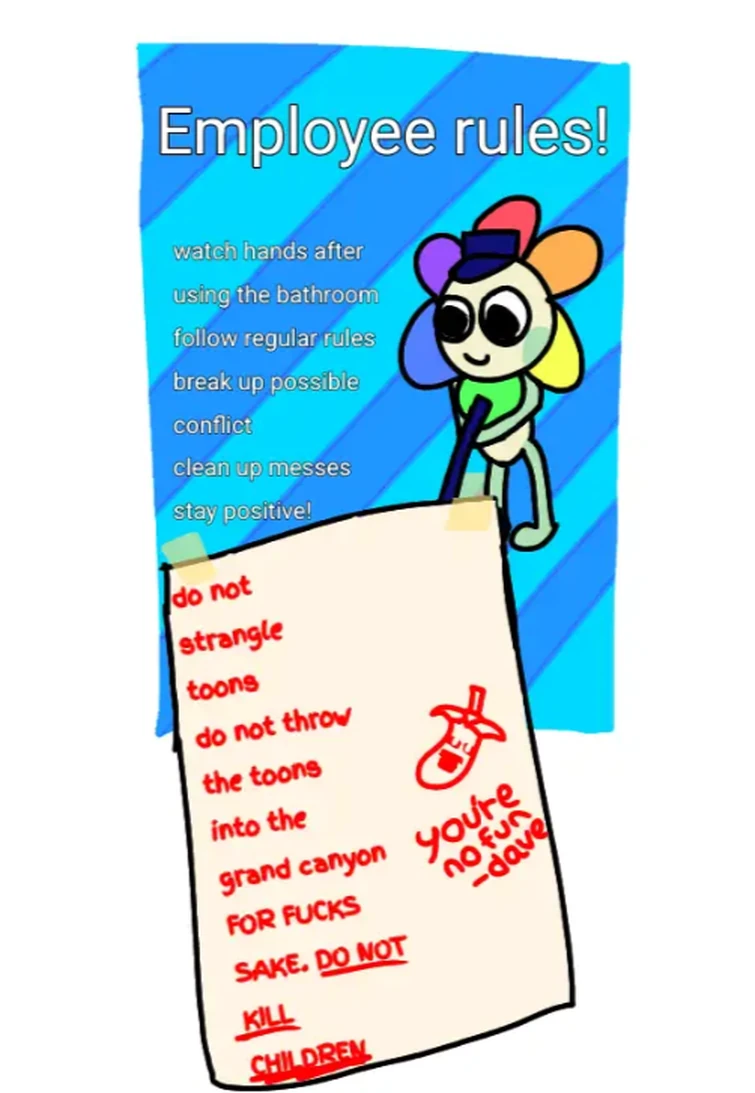 Employee rules!
watch hands after
using the bathroom
follow regular rules
break up possible
conflict
clean up messes
stay positive!
do not
strangle
toons
do not throw
the toons
into the
grand canyon
FOR FUCKS
SAKE. DO NOT
KILL
CHILDREN
you're
no fun
-dave